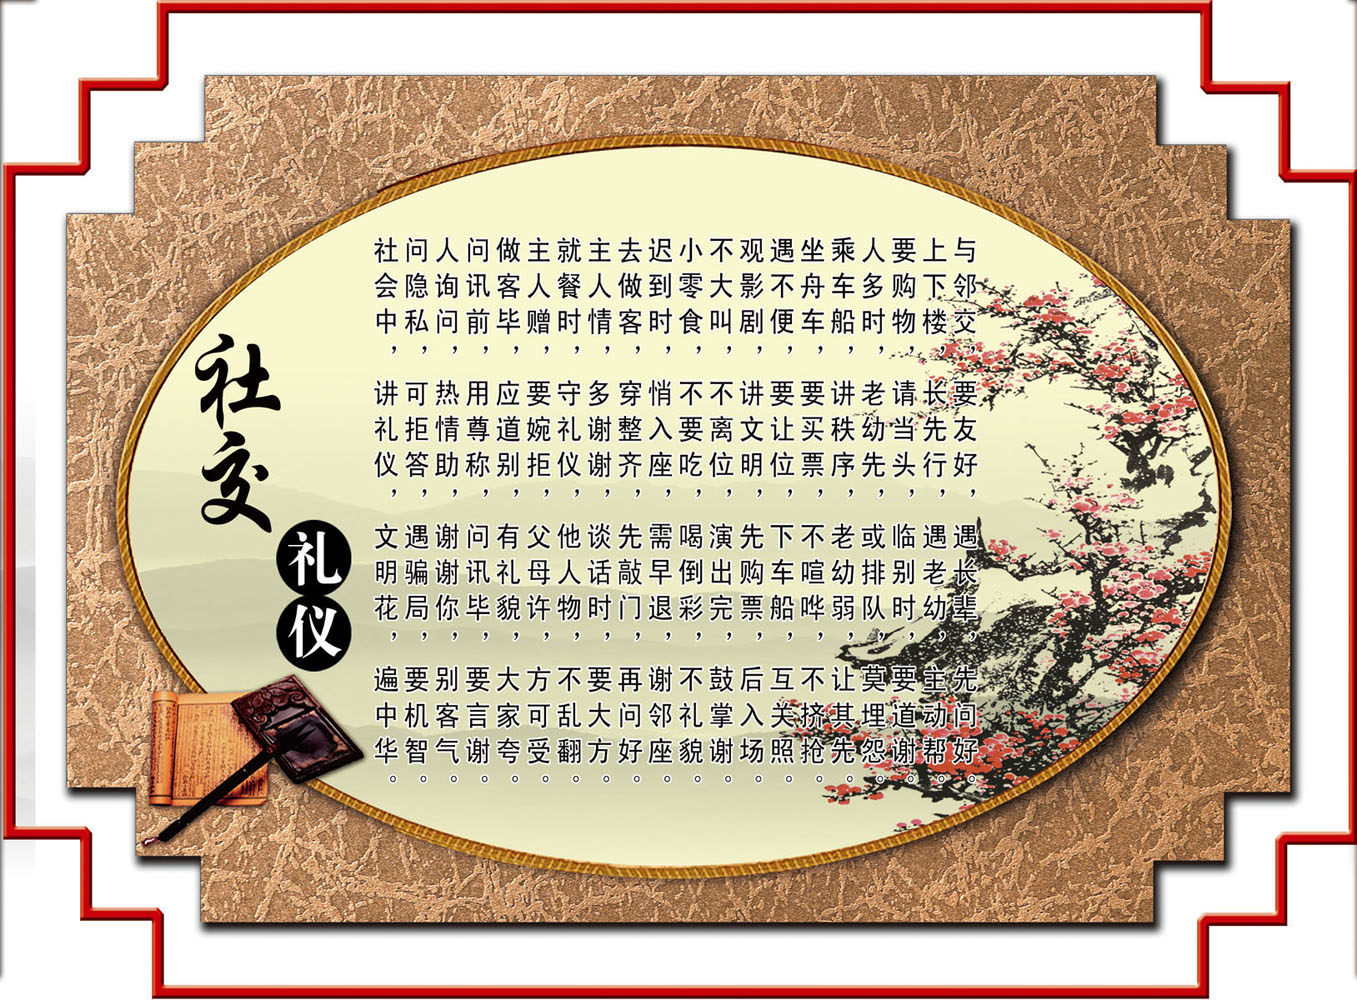 社交
礼仪
社会中，讲礼仪，文明花，遍中华。
问隐私，可拒答，遇骗局，要机智。
人询问，热情助，谢谢你，别客气。
问讯前，用尊称，问讯毕，要言谢。
做客毕，应道别，有礼貌，大家夸。
主人赠，要婉拒，父母许，方可受。
就餐时，守礼仪，他人物，不乱翻。
主人情，多谢谢，谈话时，要大方。
去做客，穿整齐，先敲门，再问好。
迟到时，悄入座，需早退，谢邻座。
小零食，不要吃，喝倒彩，不礼貌。
不大叫，不离位，演出完，鼓掌谢。
观影剧，讲文明，先购票，后入场。
遇不便，要让位，下车船，互关照。
坐舟车，要买票，不喧哗，不挤抢。
乘车船，讲秩序，老幼弱，让其先。
人多时，老幼先，或排队，莫埋怨。
要购物，请当头，临别时，要道谢。
上下楼，长先行，遇老幼，主动帮。
与邻交，要友好，遇长辈，先问好。